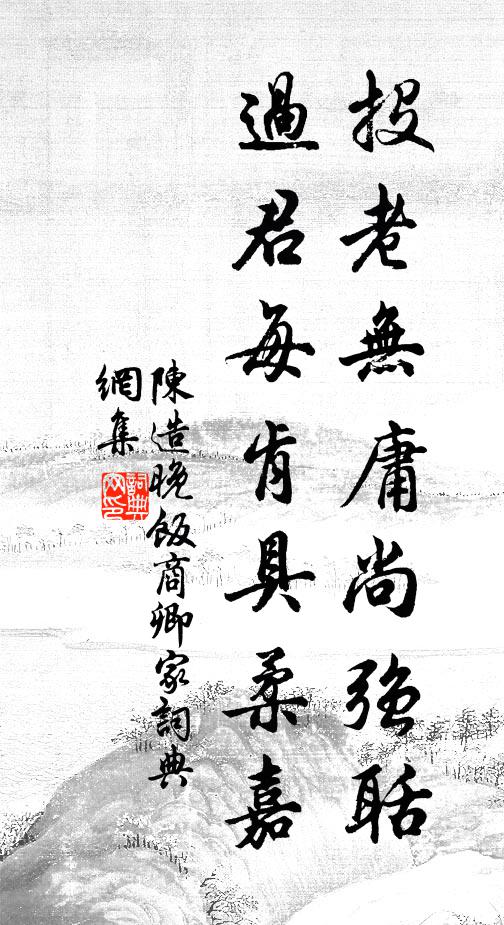 投老無庸尚強聒
過君每肯具柔嘉
陳造晚飯商卿家詞典
網集
詞典
网印